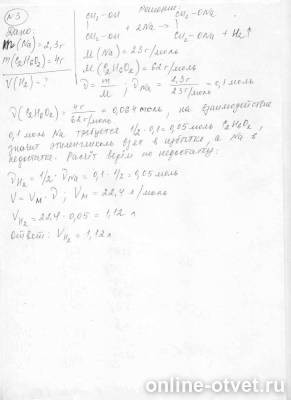 №3
Решение:
Дано:
m(Na) = 2,3г
m(C2H6O2) = 4г
V(H2) - ?
CH2-OH CH2-ONa
| + 2Na → |
CH2-OH CH2-ONa + H2↑
M(Na) = 23 г/моль
M(C2H6O2) = 62 г/моль
ν = m/M ; νNa = 2,3г/23г/моль = 0,1 моль
ν(C2H6O2) = 4г/62г/моль = 0,064 моль, на взаимодействие
0,1 моль Na требуется 1/2·0,1 = 0,05 моль C2H6O2,
значит этиленгликоль взят в избытке, а Na в
недостатке. Расчёт ведём по недостатку:
νH2 = 1/2·νNa = 0,1·1/2 = 0,05 моль
V = VM·ν ; VM = 22,4 л/моль
VH2 = 22,4·0,05 = 1,12 л
Ответ: VH2 = 1,12 л.
online-otvet.ru